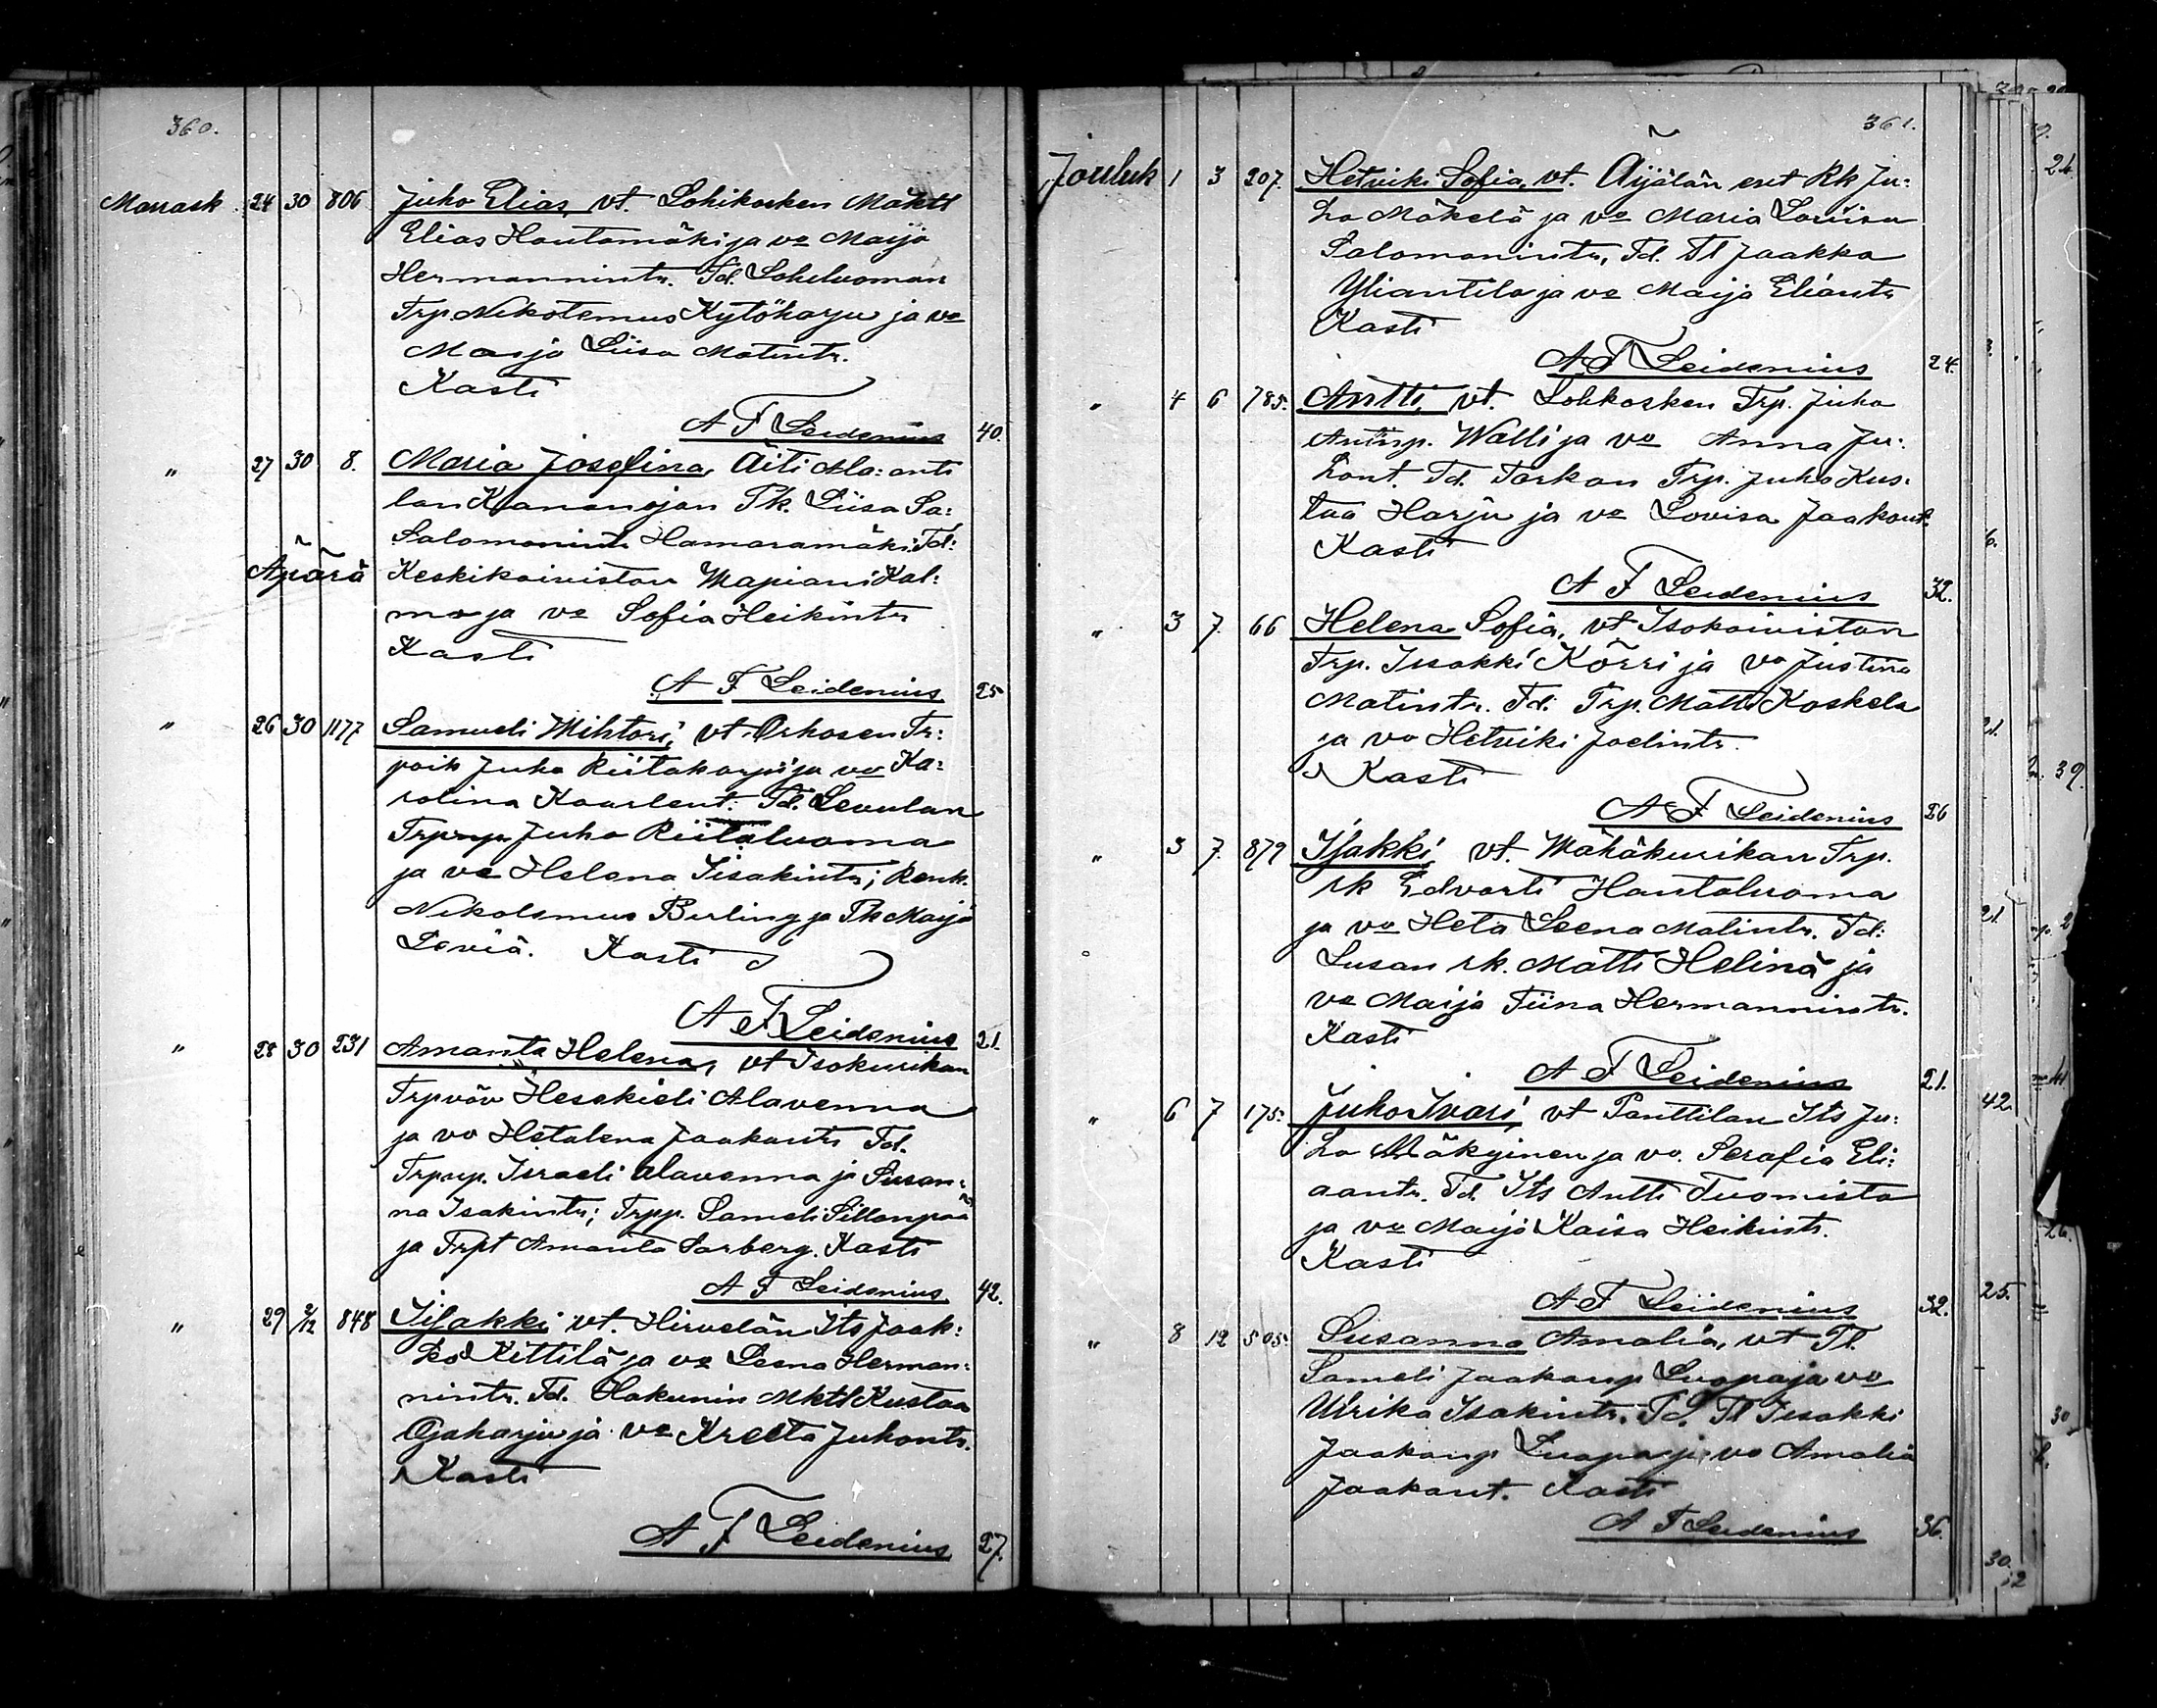 360.
Marrask 24 30 806 Juho Elias, vt. Lohikosken Mäktl
Elias Hautamäki ja vo Maija
Hermannintr. Td. Loheluoman
Trp Nikotemus Kytöharju ja vo
Maija Liisa Matintr.
Kasti
A F Leidenius 40.
" 27 30 8. Maria Josefina, Äiti Ala: anti
lan Kananojan Pk. Liisa Sa:
Salomonintr Hamaramäki. Td:
Äpärä Keskikoiviston Mapiani Kal:
mo ja vo Sofia Heikintr
Kasti
A F Leidenius 25
" 26 30 1177 Samueli Mihtori, vt. Orhosen Tr:
poik Juho Riitakorpi ja vo Ka:
rolina Kaarlent. Td. Levulan
Trpnp Juho Riitaluoma
ja vo Helena Iisakintr; Renk.
Nikolemus Berling ja Pk Maija
Leviä. Kasti
A F Leidenius 21.
" 28 30 231 Amanta Helena, vt Isokurikan
Trpväv Hesekieli Alavenna
ja vo Hetalena Jaakontr Td.
Trpnp. Israeli Alavenna ja Susan:
na Isakintr; Trpp. Sameli Sillanpää
ja Trpt Amanta Sarberg. Kasti
A F Leidenius 42.
" 29 2/12 848 Iisakki vt. Hirvelän Its Jaak:
ko Kittilä ja vo Leena Herman:
nintr. Td. Hakunin Mktl Kustaa
Ojaharju ja vo Kreeta Juhontr.
Kasti
A F Leidenius 27.
361.
Jouluk 1 3 207. Hetviki Sofia, vt. Äijälän ent Rk Ju:
ho Mäkelä ja vo Maria Loviisa
Salomonintr, Td. Tl Jaakko
Yliantila ja vo Maija Eliantr
Kasti
A F Leidenius 24.
" 4 6 785. Antti, vt. Lohkosken Trp. Juho
Antinp. Walli ja vo Anna Ju:
hont. Td. Tarkan Trp. Juho Kus:
taa Harju ja vo Lovisa Jaakont.
Kasti
A F Leidenius 32.
" 3 7. 66 Helena Sofia, vt Isokoiviston
Trp. Iisakki Körri ja vo Justina
Matintr. Td: Trp. Matti Koskela
ja vo Hetviki Joelintr.
Kasti
A F Leidenius 26
" 3 7. 879 Isakki, vt. Mähäkurikan Trp.
rk Edvarti Hautaluoma
ja vo Heta Leena Matintr. Td:
Lusan rk. Matti Helinä ja
vo Maija Tiina Hermannintr.
Kasti
A F Leidenius 21.
" 6 7 175. Juho Ivari, vt Panttilan Its Ju:
ho Mäkyinen ja vo. Serafia Eli:
aantr. Td. Its Antti Tuomisto
ja vo Maija Kaisa Heikintr.
Kasti
A F Leidenius 32.
" 8 12 505. Susanna Amalia, vt Tl.
Sameli Jaakonp Luopa ja vo
Ulrika Isakintr. Td. Tl Iisakki
Jaakonp Luopa ja vo Amalia
Jaakont. Kasti
A F Leidenius 36.